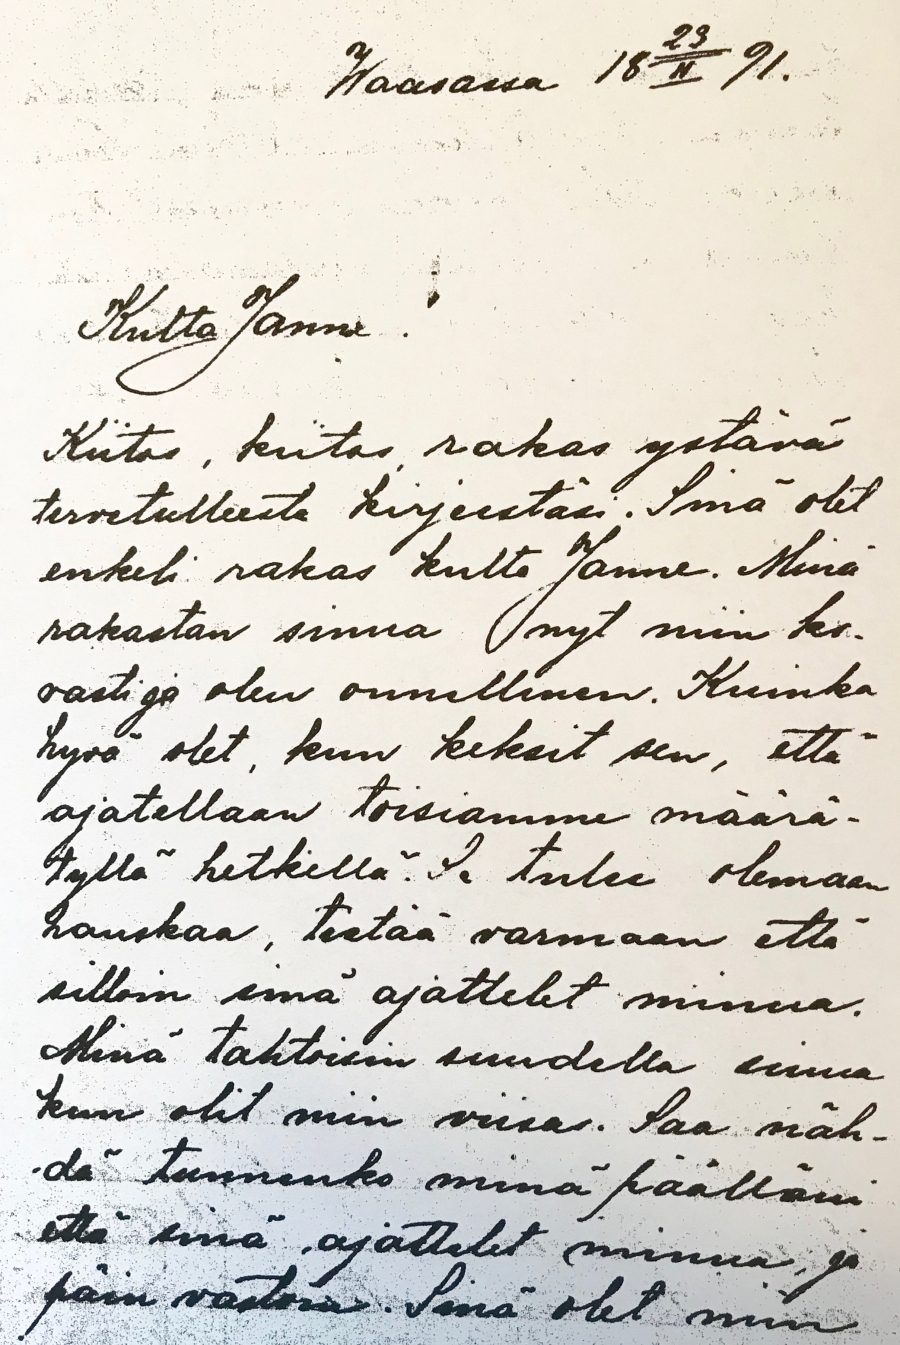 Waasassa 18 23/II 91.
Kulta Janne!
Kiitos, kiitos, rakas ystävä
tervetulleesta kirjeestäsi. Sinä olet
enkeli rakas kulta Janne. Minä
rakastan sinua nyt niin ko-
vasti ja olen onnellinen. Kuinka
hyvä olet, kun keksit sen, että
ajatellaan toisiamme määrä-
tyllä hetkellä. Se tulee olemaan
hauskaa, tietää varmaan että
silloin sinä ajattelet minua.
Minä tahtoisin suudella sinua
kun olit niin viisas. Saa näh-
dä tunnenko minä päälläni
että sinä ajattelet minua, ja
päin vastoin. Sinä olet niin